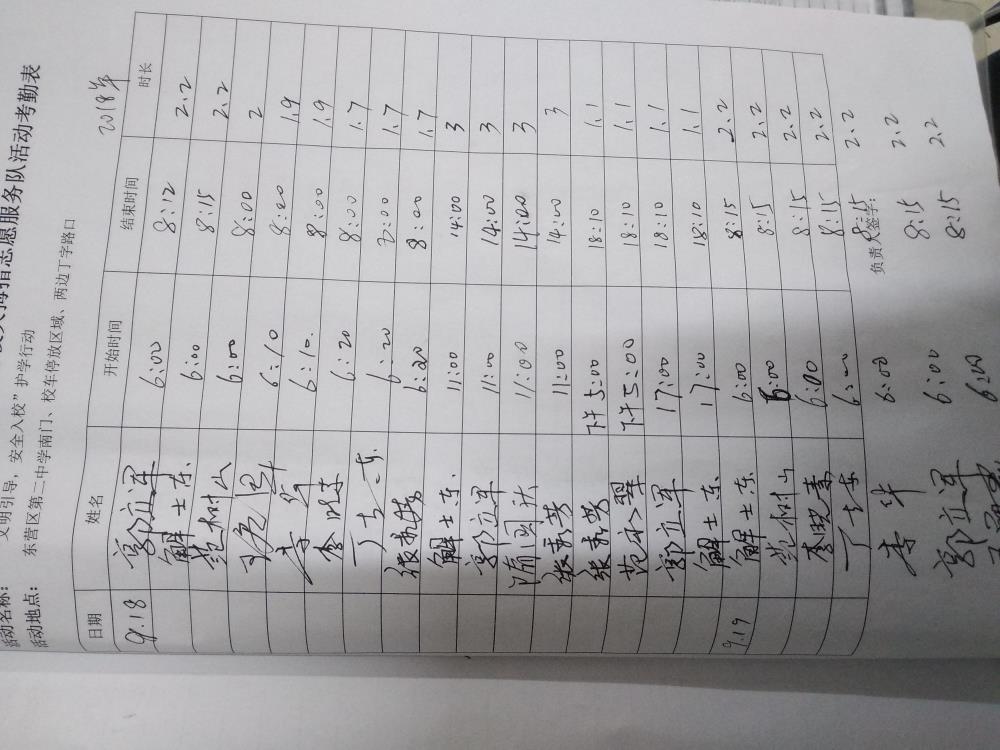 志愿服务队活动考勤表
活动名称： "文明引导，安全入校"护学行动
活动地点： 东营区第二中学南门、校车停放区域、两边丁字路口
2018年
日期 姓名 开始时间 结束时间 时长
9.18 郭立军 6:00 8:12 2.2
解士东 6:00 8:15 2.2
范树山 6:00 8:00 2
6:10 8:00 1.9
李 6:10. 8:00 1.9
李 6:20 8:00 1.7
丁志东 6:20 8:00 1.7
张永芳 6:20 8:00 1.7
解士东 11:00 14:00 3
郭立军 11:00 14:00 3
隋国 11:00 14:00 3
张永芳 11:00 14:00 3
张永芳 下午5:00 18:10 1.1
范 翠 下午5:00 18:10 1.1
郭立军 17:00 18:10 1.1
解士东 17:00 18:10 1.1
9.19 解士东 6:00 8:15 2.2
范树山 6:00 8:15 2.2
李晓 6:00 8:15 2.2
丁志东 6:00 8:15 2.2
负责人签字：
李华 6:00 8:15 2.2
郭立军 6:00 8:15 2.2
6:00